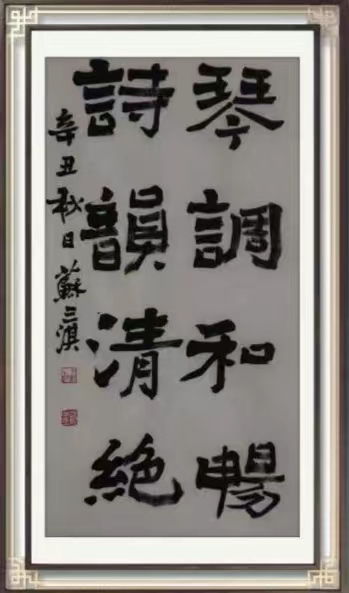 琴調和暢
詩韻清絕
辛丑秋日蘇三淇